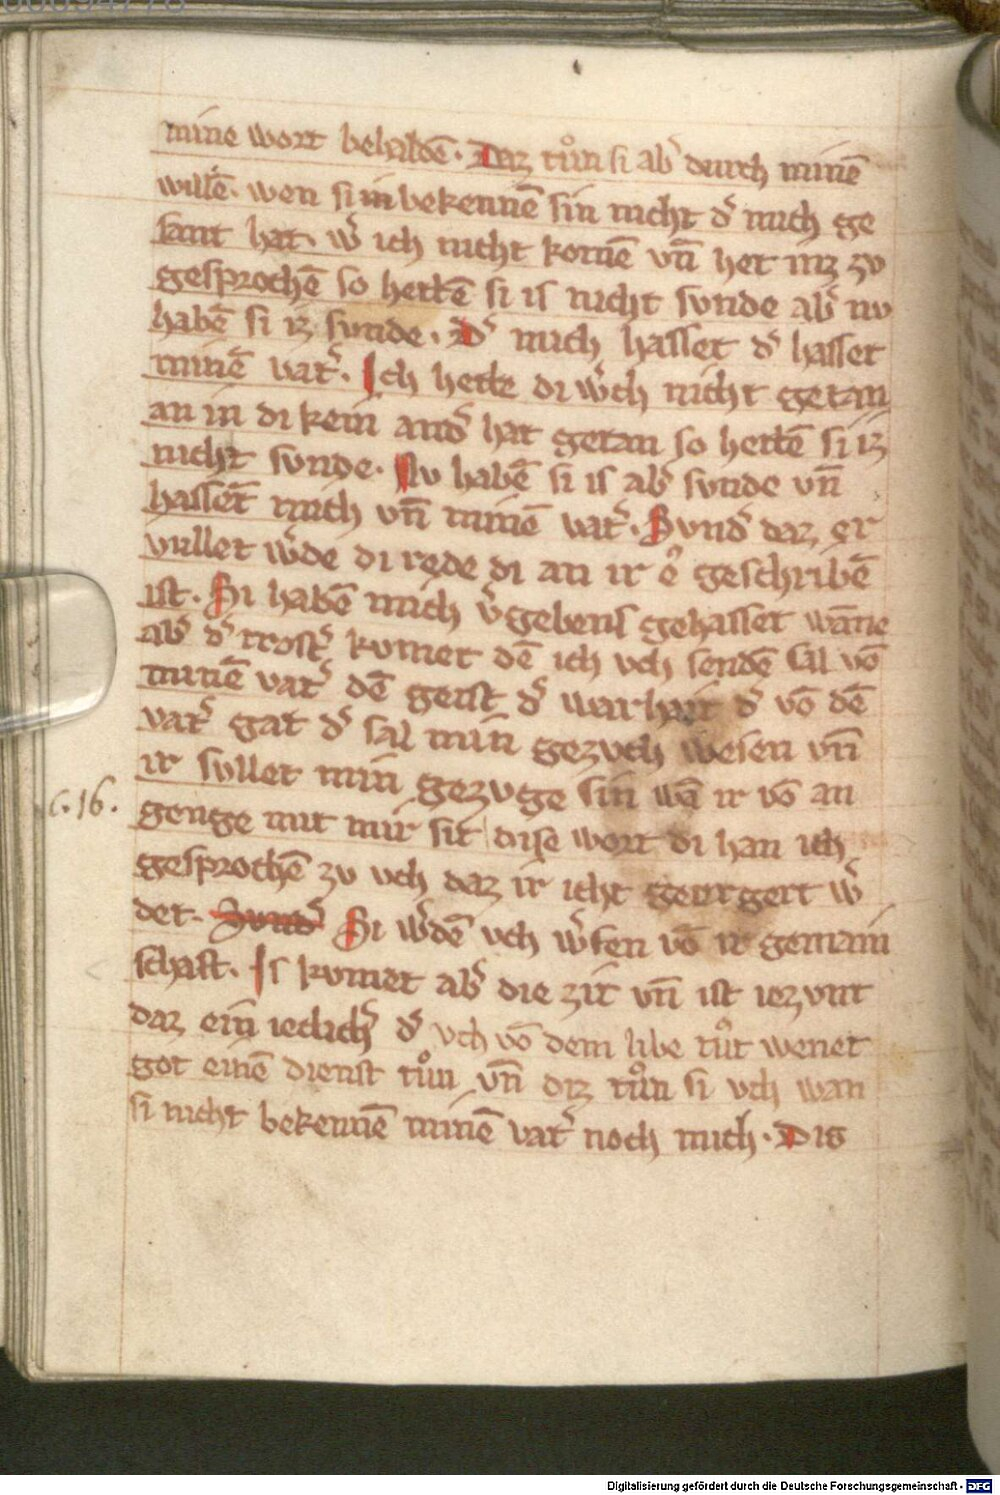 mine wort behaldē. Daz tůn si ab͛ durch minē
willē. wen si in bekennē sin nicht d͛ mich ge
sant hat. w͛ ich nicht komē vn̄ het inz zv
gesprochē so hettē si is nicht svnde ab͛ nv
habē si iz svnde. D͛ mich hasset d͛ hasset
minē vat͛. Ich hette di w͛ch nicht getan
an in di kein and͛ hat getan so hettē si iz
nicht svnde. Nv habē si is ab͛ svnde vn̄
hassēt mich vn̄ minē vat͛. Svnd͛ daz er
vullet w͛de di rede di an ir e͛ geschribē
ist. Si habē mich v͛gebens gehasset wāne
ab͛ d͛ trost͛ kvmet dē ich vch sendē sal vō
minē vat͛ dē geist d͛ warheit d͛ vō dē
vat͛ gat d͛ sal min gezvch wesen vn̄
ir svllet min gezvge sin wā ir vō an
c. 16.
genge mit mir sit dise wort di han ich
gesprochē zv vch daz ir icht geergert w͛
det. Svnd͛ Si w͛dē vch w͛fen vō ir gemain
schaft. Is kvmet ab͛ die zit vn̄ ist iezvnt
daz ein ieclich͛ d͛ vch vō dem libe tůt wenet
got einē dienst tůn vn̄ diz tůn si vch wan
si nicht bekennē minē vat͛ noch mich. Dis
Digitalisierung gefördert durch die Deutsche Forschungsgemeinschaft - DFG